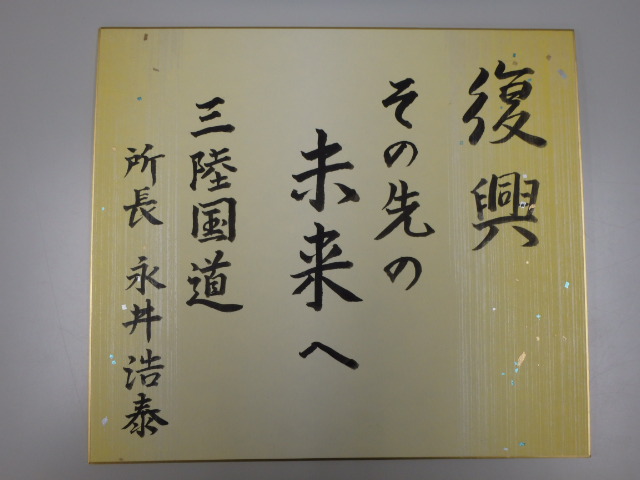 復興
その先の
未来へ
三陸国道
所長 永井浩泰